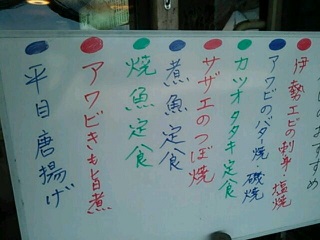 おすすめ
伊勢エビの刺身・塩焼
アワビのバター焼 磯焼
カツオタタキ定食
サザエのつぼ焼
煮魚定食
焼魚定食
アワビきも旨煮
平目唐揚げ